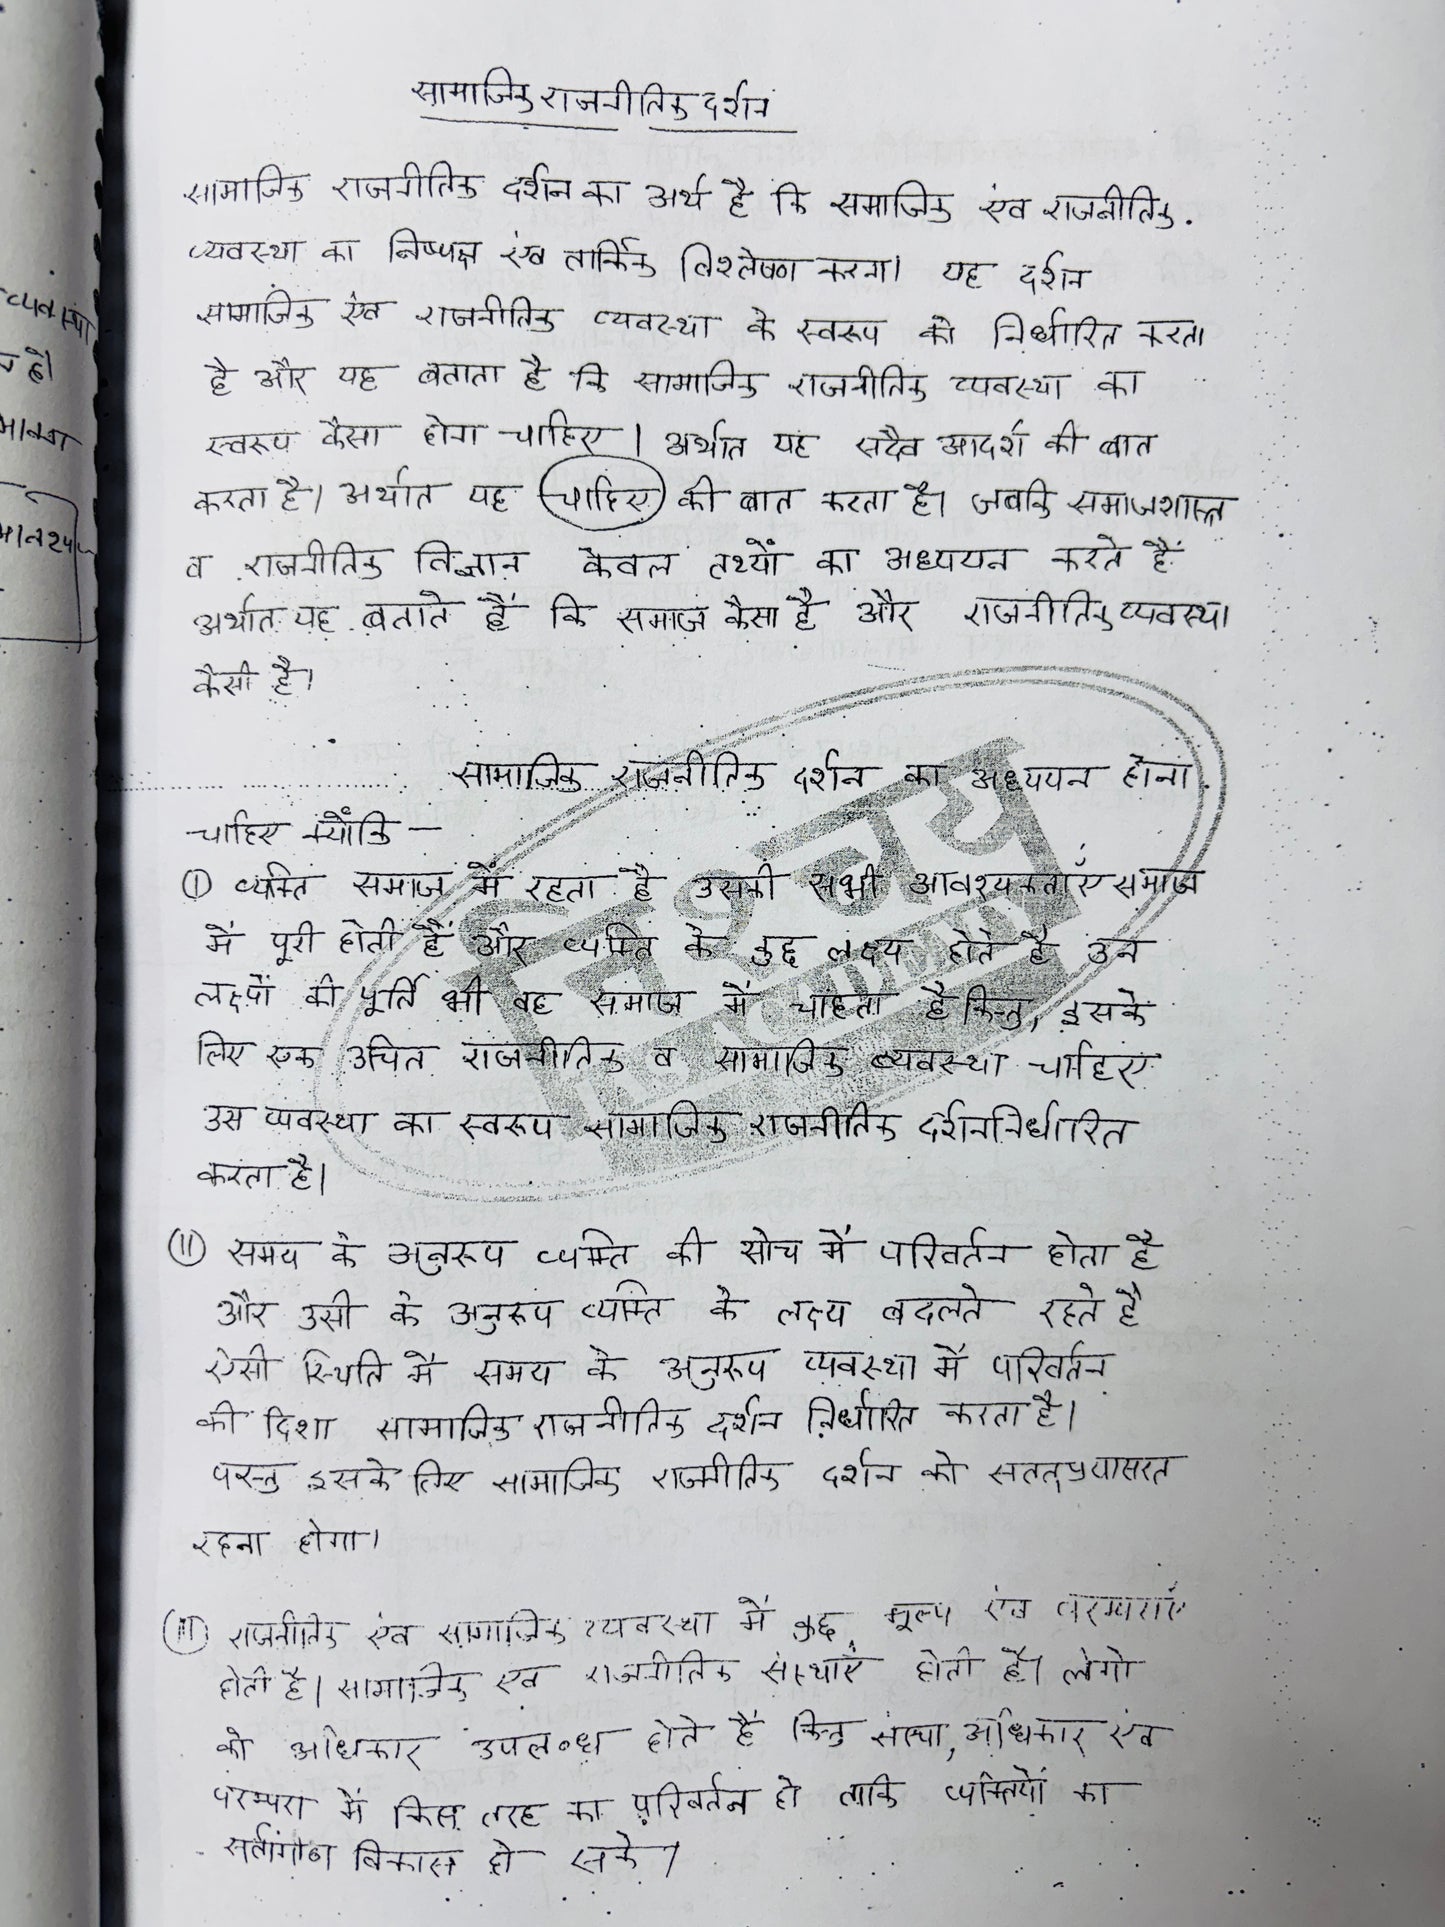 सामाजिक राजनीतिक दर्शन
सामाजिक राजनीतिक दर्शन का अर्थ है कि समाजिक एंव राजनीतिक
व्यवस्था का निष्पक्ष एंव तार्किक विश्लेषण करना। यह दर्शन
सामाजिक एंव राजनीतिक व्यवस्था के स्वरूप को निर्धारित करता
है और यह बताता है कि सामाजिक राजनीतिक व्यवस्था का
स्वरूप कैसा होना चाहिए। अर्थात यह सदैव आदर्श की बात
करता है। अर्थात यह चाहिए की बात करता है। जबकि समाजशास्त्र
व राजनीतिक विज्ञान केवल तथ्यों का अध्ययन करते हैं
अर्थात यह बताते हैं कि समाज कैसा है और राजनीतिक व्यवस्था
कैसी है।
सामाजिक राजनीतिक दर्शन का अध्ययन होना
चाहिए क्योंकि –
(I) व्यक्ति समाज में रहता है उसकी सभी आवश्यकताएँ समाज
में पूरी होती हैं और व्यक्ति के कुछ लक्ष्य होते है उन
लक्ष्यों की पूर्ति भी वह समाज में चाहता है किन्तु, इसके
लिए एक उचित राजनीतिक व सामाजिक व्यवस्था चाहिए
उस व्यवस्था का स्वरूप सामाजिक राजनीतिक दर्शन निर्धारित
करता है।
(II) समय के अनुरूप व्यक्ति की सोच में परिवर्तन होता है
और उसी के अनुरूप व्यक्ति के लक्ष्य बदलते रहते है
ऐसी स्थिति में समय के अनुरूप व्यवस्था में परिवर्तन
की दिशा सामाजिक राजनीतिक दर्शन निर्धारित करता है।
परन्तु इसके लिए सामाजिक राजनीतिक दर्शन को सतत प्रयासरत
रहना होगा।
(III) राजनीतिक एंव सामाजिक व्यवस्था में कुछ मूल्य एंव परम्पराएं
होती है। सामाजिक एव राजनीतिक संस्थाएं होती है। लोगो
को अधिकार उपलब्ध होते हैं किन्तु संस्था, अधिकार एंव
परम्परा में किस तरह का परिवर्तन हो ताकि व्यक्तियों का
सर्वांगीण विकास हो सके।